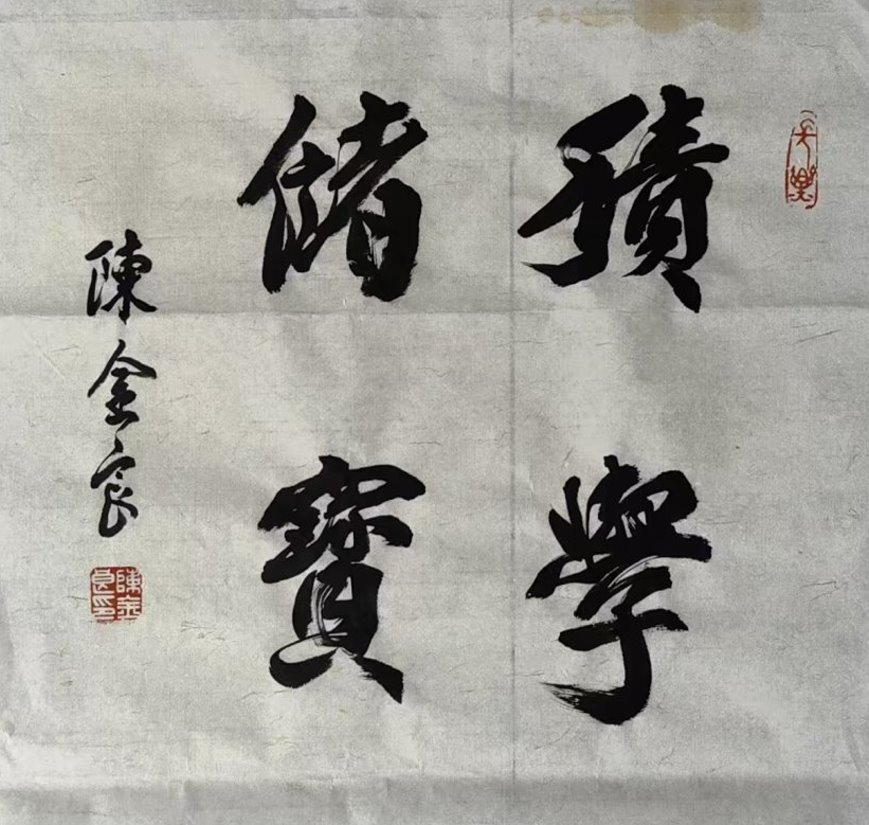 積學
儲寶
陳金良
陳金良印